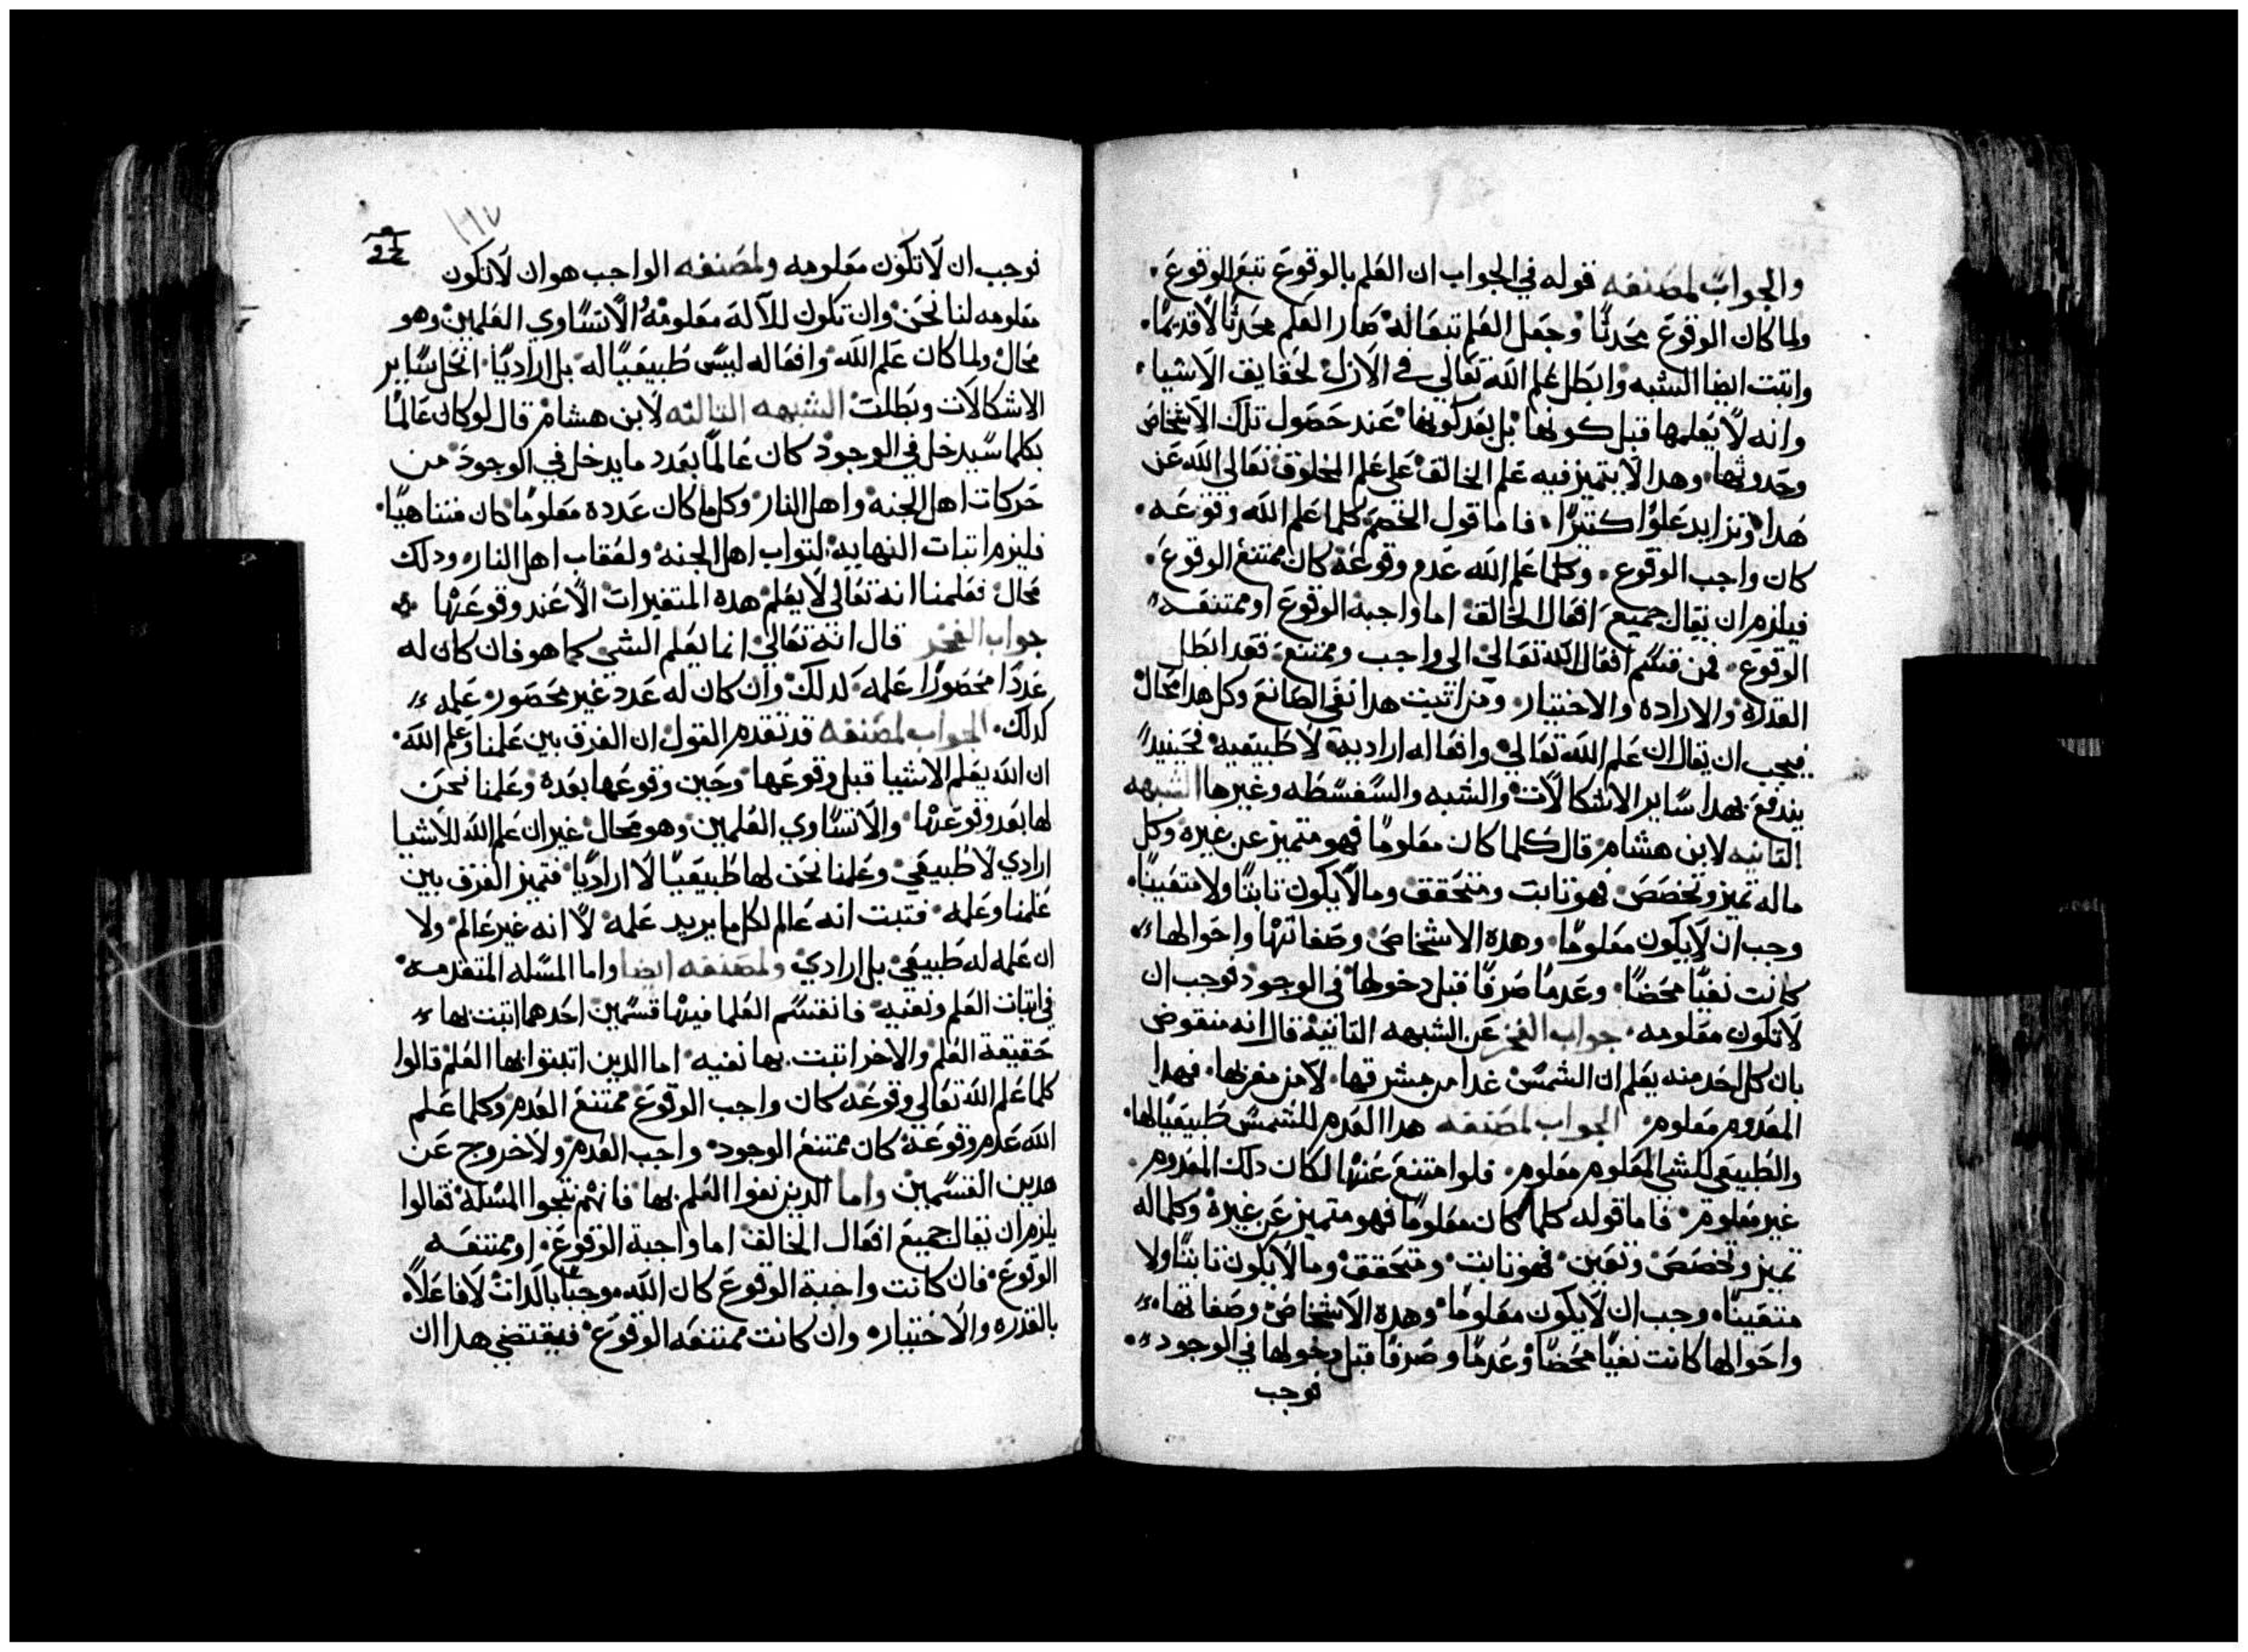 والجواب لمصنفه قوله في الجواب ان العلم بالوقوع تبع الوقوع.
ولما كان الوقوع محدثًا وجعل العلم تبعًا له صار العلم محدثًا لا قديمًا.
واتبت ايضا الشبه وابطل علم الله تعالي في الازل لحقايق الاشيا.
وانه لا يعلمها قبل كونها بل بعد كونها عند حصول تلك الاشخاص
وحدوثها. وهدا لا يتميز فيه علم الخالق علي علم المخلوق تعالي الله عن
هدا وتزايد علوًا كتيرًا. فاما قول الخصم كلما علم الله وقوعه.
كان واجب الوقوع. وكلما علم الله عدم وقوعه كان ممتنع الوقوع.
فيلزم ان يقال جميع افعال الخالق اما واجبة الوقوع او ممتنعه
الوقوع. فمن قسم افعال الله تعالي الي واجب وممتنع فقد ابطل
القدره والاراده والاختيار. ومن اتبت هدا نفي الصانع وكل هدا محال
فيجب ان يقال ان علم الله تعالي وافعاله اراديه لا طبيعيه فحينيدٍ
يندفع بهدا ساير الاشكالات والشبه والسفسطه وغيرها الشبهه
التانيه لابن هشام قال كلما كان معلومًا فهو متميز عن غيره وكل
ماله تميز وتخصص فهو تابت ومتحقق وما لا يكون تابتًا ولا متعينًا.
وجب ان لا يكون معلومًا. وهده الاشخاص وصفاتها واحوالها
كانت نفيًا محضًا. وعدمًا صرفًا قبل دخولها في الوجود فوجب ان
لا تكون معلومه. جواب الفخر عن الشبهه التانيه قال انه منقوض
بان كل احد منه يعلم ان الشمس غدا من مشرقها. لا من مغربها. فهدا
المعدوم معلوم. الجواب لمصنفه هدا العدم للشمس طبيعيًا لها.
والطبيعي للشي المعلوم معلوم. فلو امتنع عنها لكان دلك المعدوم
غير معلوم. فاما قوله كلما كان معلومًا فهو متميز عن غيره وكلما له
تميز وتخصص وتعين. فهو تابت ومتحقق وما لا يكون تابتًا ولا
متعينًا. وجب ان لا يكون معلومًا وهده الاشخاص وصفاتها.
واحوالها كانت نفيًا محضًا وعدمًا وصرفًا قبل دخولها في الوجود
فوجب
١٦٧
فوجب ان لا تكون معلومه ولمصنفه الواجب هو ان لا تكون
معلومه لنا نحن وان تكون للاله معلومةُ والا تساوي العلمين وهو
محال ولما كان علم الله وافعاله ليس طبيعيًا له بل اراديًا. انحل ساير
الاشكالات وبطلت الشبهه التالته لابن هشام قال لو كان عالمًا
بكلما سيدخل في الوجود كان عالمًا بعدد ما يدخل في الوجود من
حركات اهل الجنه واهل النار وكل ما كان عدده معلومًا كان متناهيًا.
فليزم اتبات النهايه لتواب اهل الجنه ولعقاب اهل النار ودلك
محال فعلمنا انه تعالي لا يعلم هده المتغيرات الا عند وقوعها
جواب الفخر قال انه تعالي انما يعلم الشي كما هو فان كان له
عددًا محصورًا علمه كدلك وان كان له عدد غير محصور علمه
كدلك. الجواب لمصنفه قد تقدم القول ان الفرق بين علمنا وعلم الله.
ان الله يعلم الاشيا قبل وقوعها وحين وقوعها بعده وعلمنا نحن
لها بعد وقوعها والا تساوي العلمين وهو محال غير ان علم الله للاشيا
ارادي لا طبيعي وعلمنا نحن لها طبيعيًا لا اراديًا فتميز الفرق بين
علمنا وعلمه. فتبت انه عالم لكل ما يريد علمه لا انه غير عالم ولا
ان علمه له طبيعي بل ارادي ولمصنفه ايضا واما المسله المتقدمه
في اتبات العلم ونفيه فانقسم العلما فيها قسمين احدهما اتبت بها
حقيقة العلم والاخر اتبت بها نفيه اما الدين اتبتوا بها العلم قالوا
كلما علم الله تعالي وقوعه كان واجب الوقوع ممتنع العدم وكلما علم
الله عدم وقوعه كان ممتنع الوجود. واجب العدم ولا خروج عن
هدين القسمين واما الدين نفوا العلم بها فانهم نتجوا المسله فقالوا
يلزم ان يقال جميع افعال الخالق اما واجبة الوقوع. او ممتنعه
الوقوع. فان كانت واجبة الوقوع كان الله موجبًا بالدات لا فاعلًا.
بالقدره والاختيار. وان كانت ممتنعه الوقوع فيقتضي هدا ان